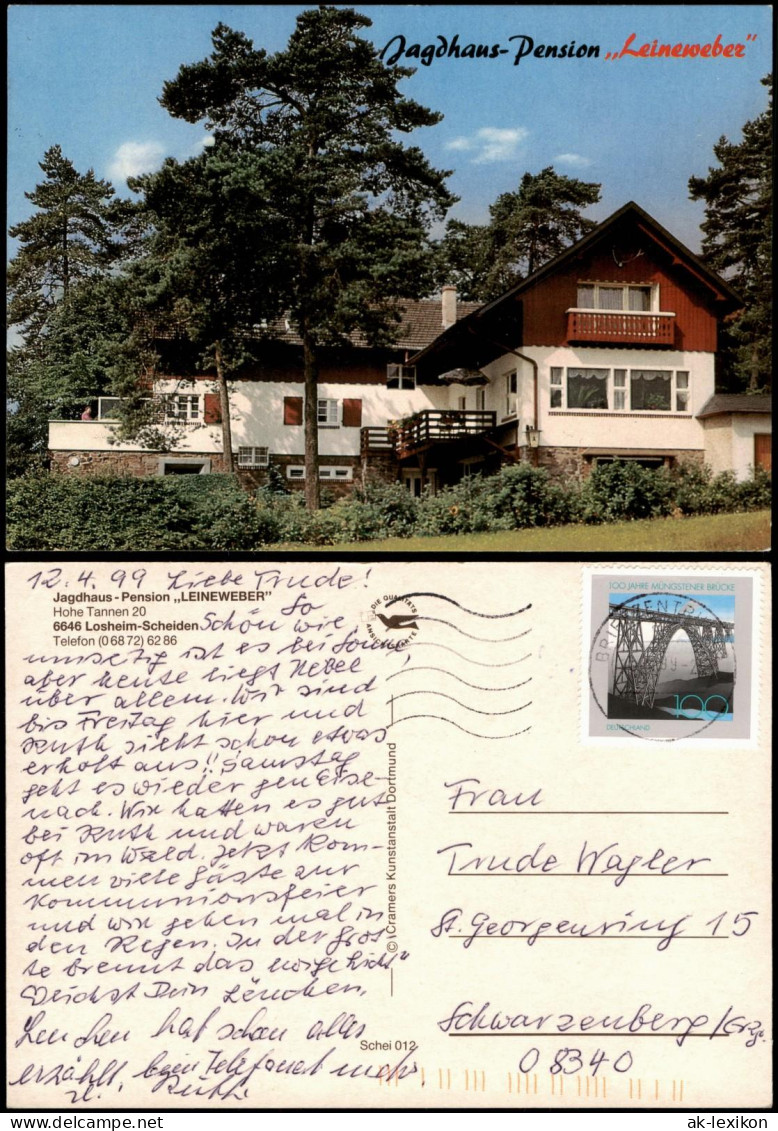 Jagdhaus-Pension „Leineweber"
12.4.99 Liebe Trude!
Jagdhaus - Pension „LEINEWEBER"
Hohe Tannen 20
6646 Losheim-Scheiden
Telefon (0 68 72) 62 86
So
Schön wie
umseitig ist es bei Sonne,
aber heute liegt Nebel
über allem. Wir sind
bis Freitag hier und
Ruth sieht schon etwas
erholt aus!! Samstag
geht es wieder gen Eise-
nach. Wir hatten es gut
bei Ruth und waren
oft im Wald. Jetzt kom-
men viele Gäste zur
Kommunionsfeier
und wir gehen mal in
den Regen. In der Grot-
te brennt das ewige Licht"
Deichst Dein Lenchen.
Lenchen hat schon alles
erzählt, beim Telefonat mehr,
Ruth
DIE QUALITÄTS
ANSICHTSKARTE
© Cramers Kunstanstalt Dortmund
Schei 012
100 JAHRE MÜNGSTENER BRÜCKE
BRIEFZENTRUM
100
DEUTSCHLAND
Frau
Trude Wagler
St. Georgenring 15
Schwarzenberg/Erzg.
08340
www.ansichtskarten-lexikon.de
ak-lexikon